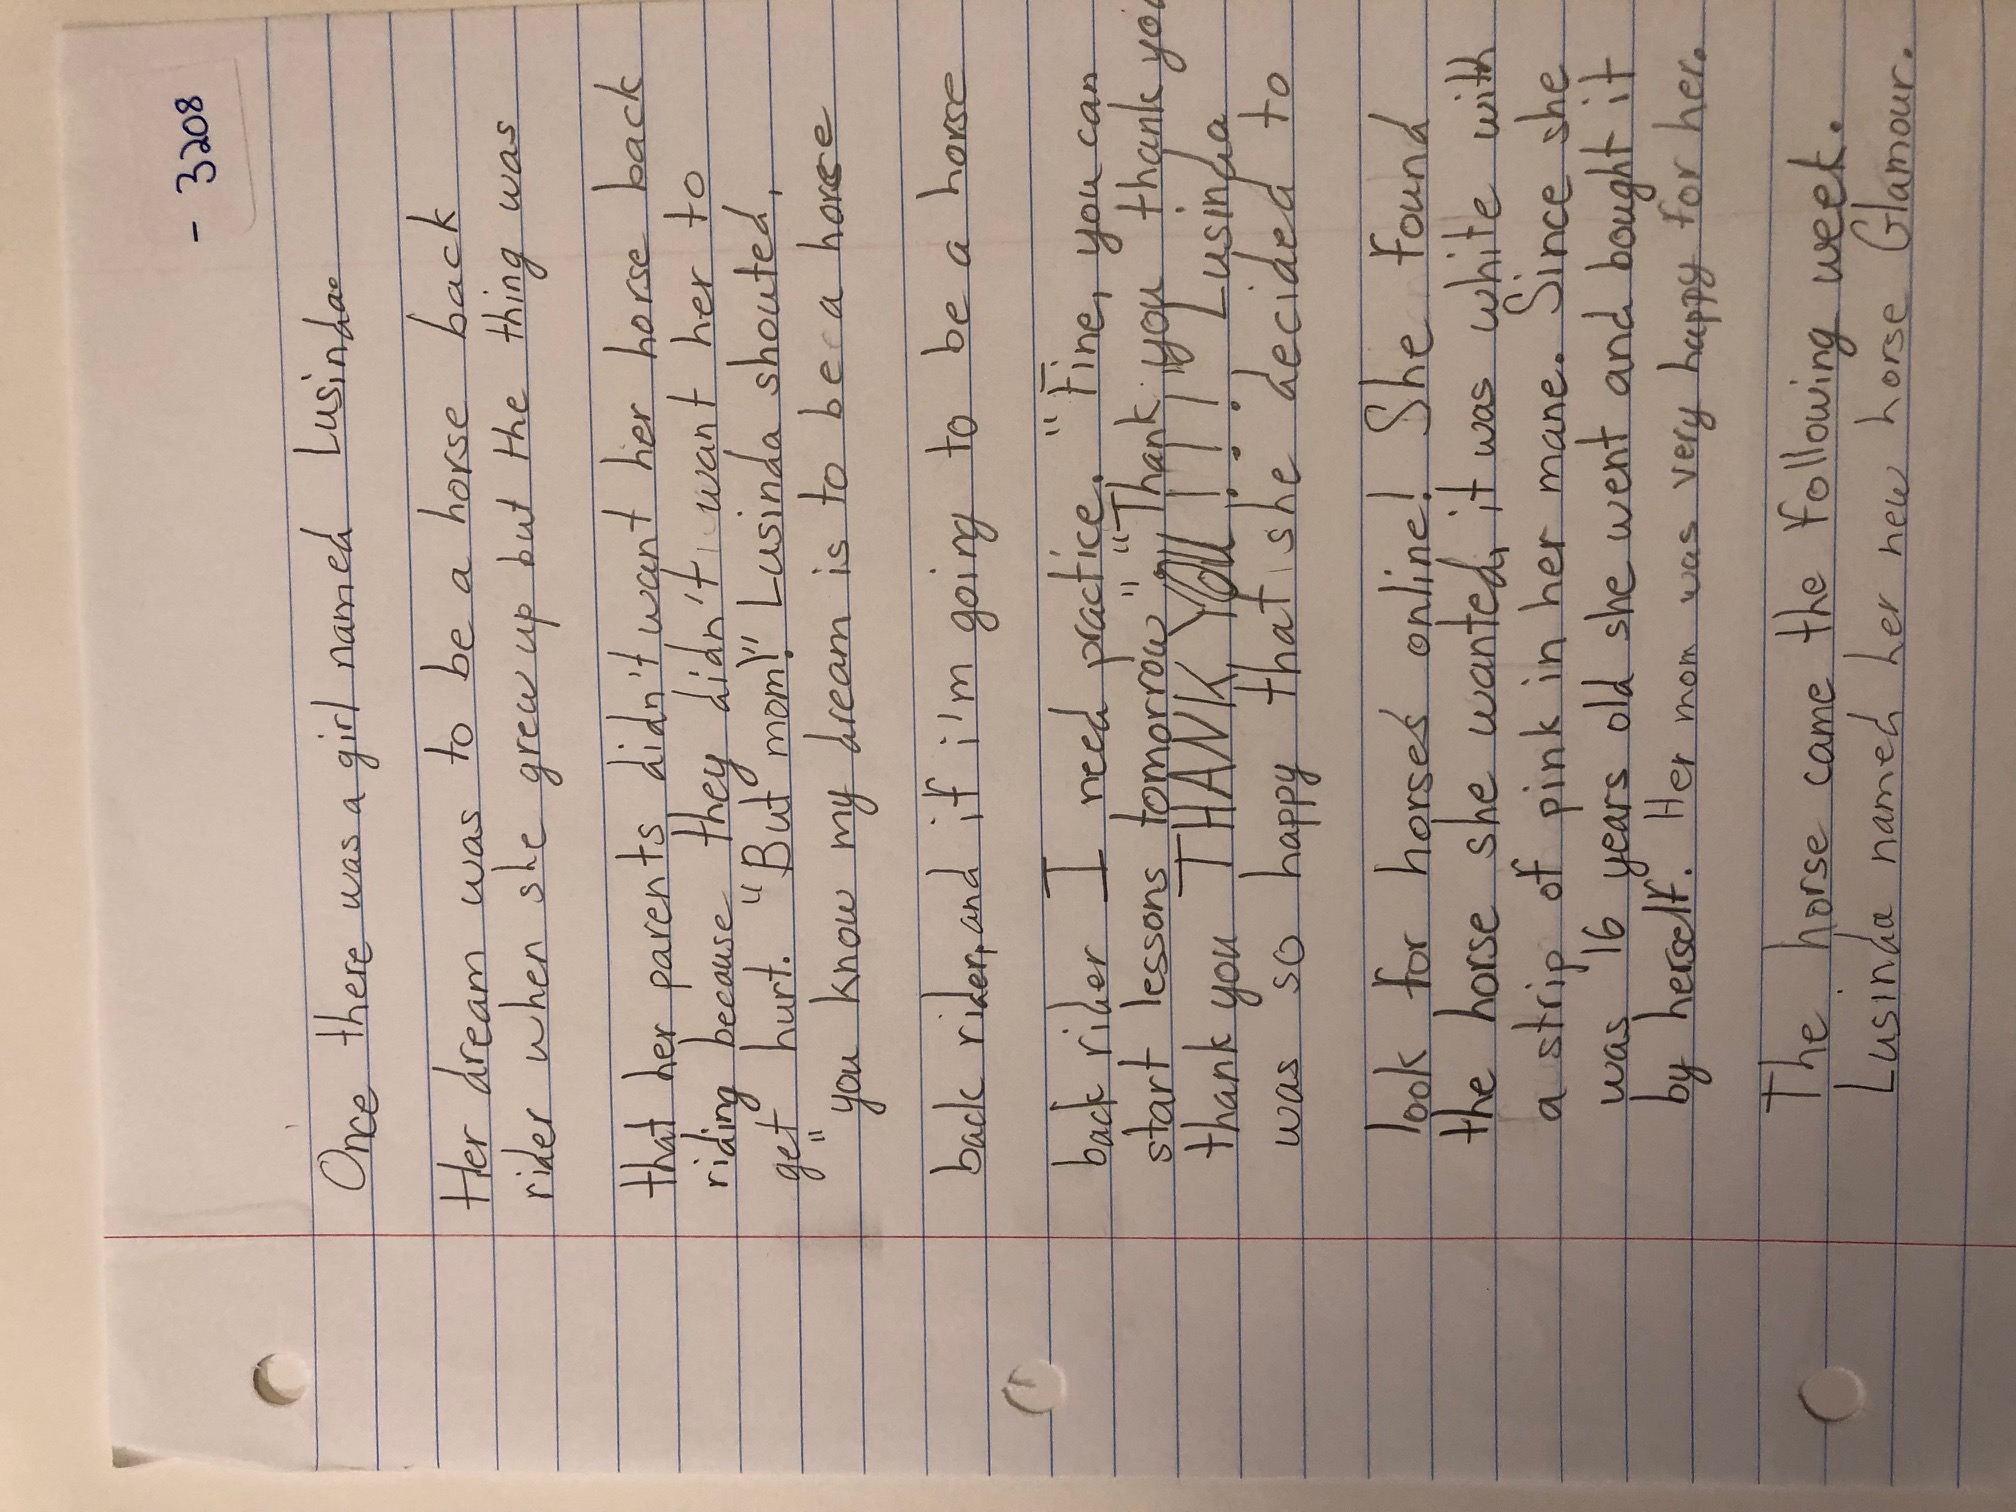 - 3208
Once there was a girl named Lusinda.
Her dream was to be a horse back
rider when she grew up but the thing was
that her parents didn't want her horse back
riding because they didn't want her to
get hurt. "But mom!" Lusinda shouted,
"you know my dream is to be a horse
back rider, and if i'm going to be a horse
back rider I need practice. "Fine, you can
start lessons tomorrow". "Thank you thank you
thank you THANK YOU!!!" Lusinda
was so happy that she decided to
look for horses online! She found
the horse she wanted, it was white with
a strip of pink in her mane. Since she
was 16 years old she went and bought it
by herself. Her mom was very happy for her.
The horse came the following week.
Lusinda named her new horse Glamour.